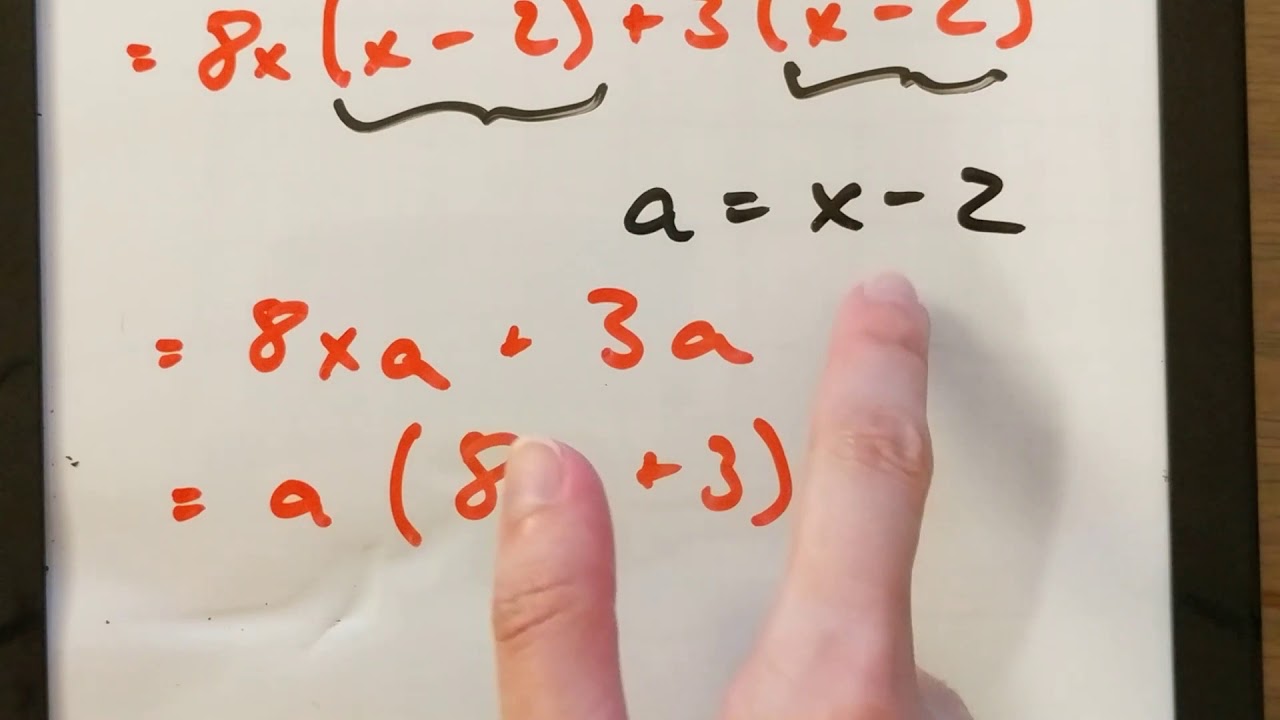 = 8x (x - 2) + 3 (x - 2)
a = x - 2
= 8xa + 3a
= a (8 + 3)